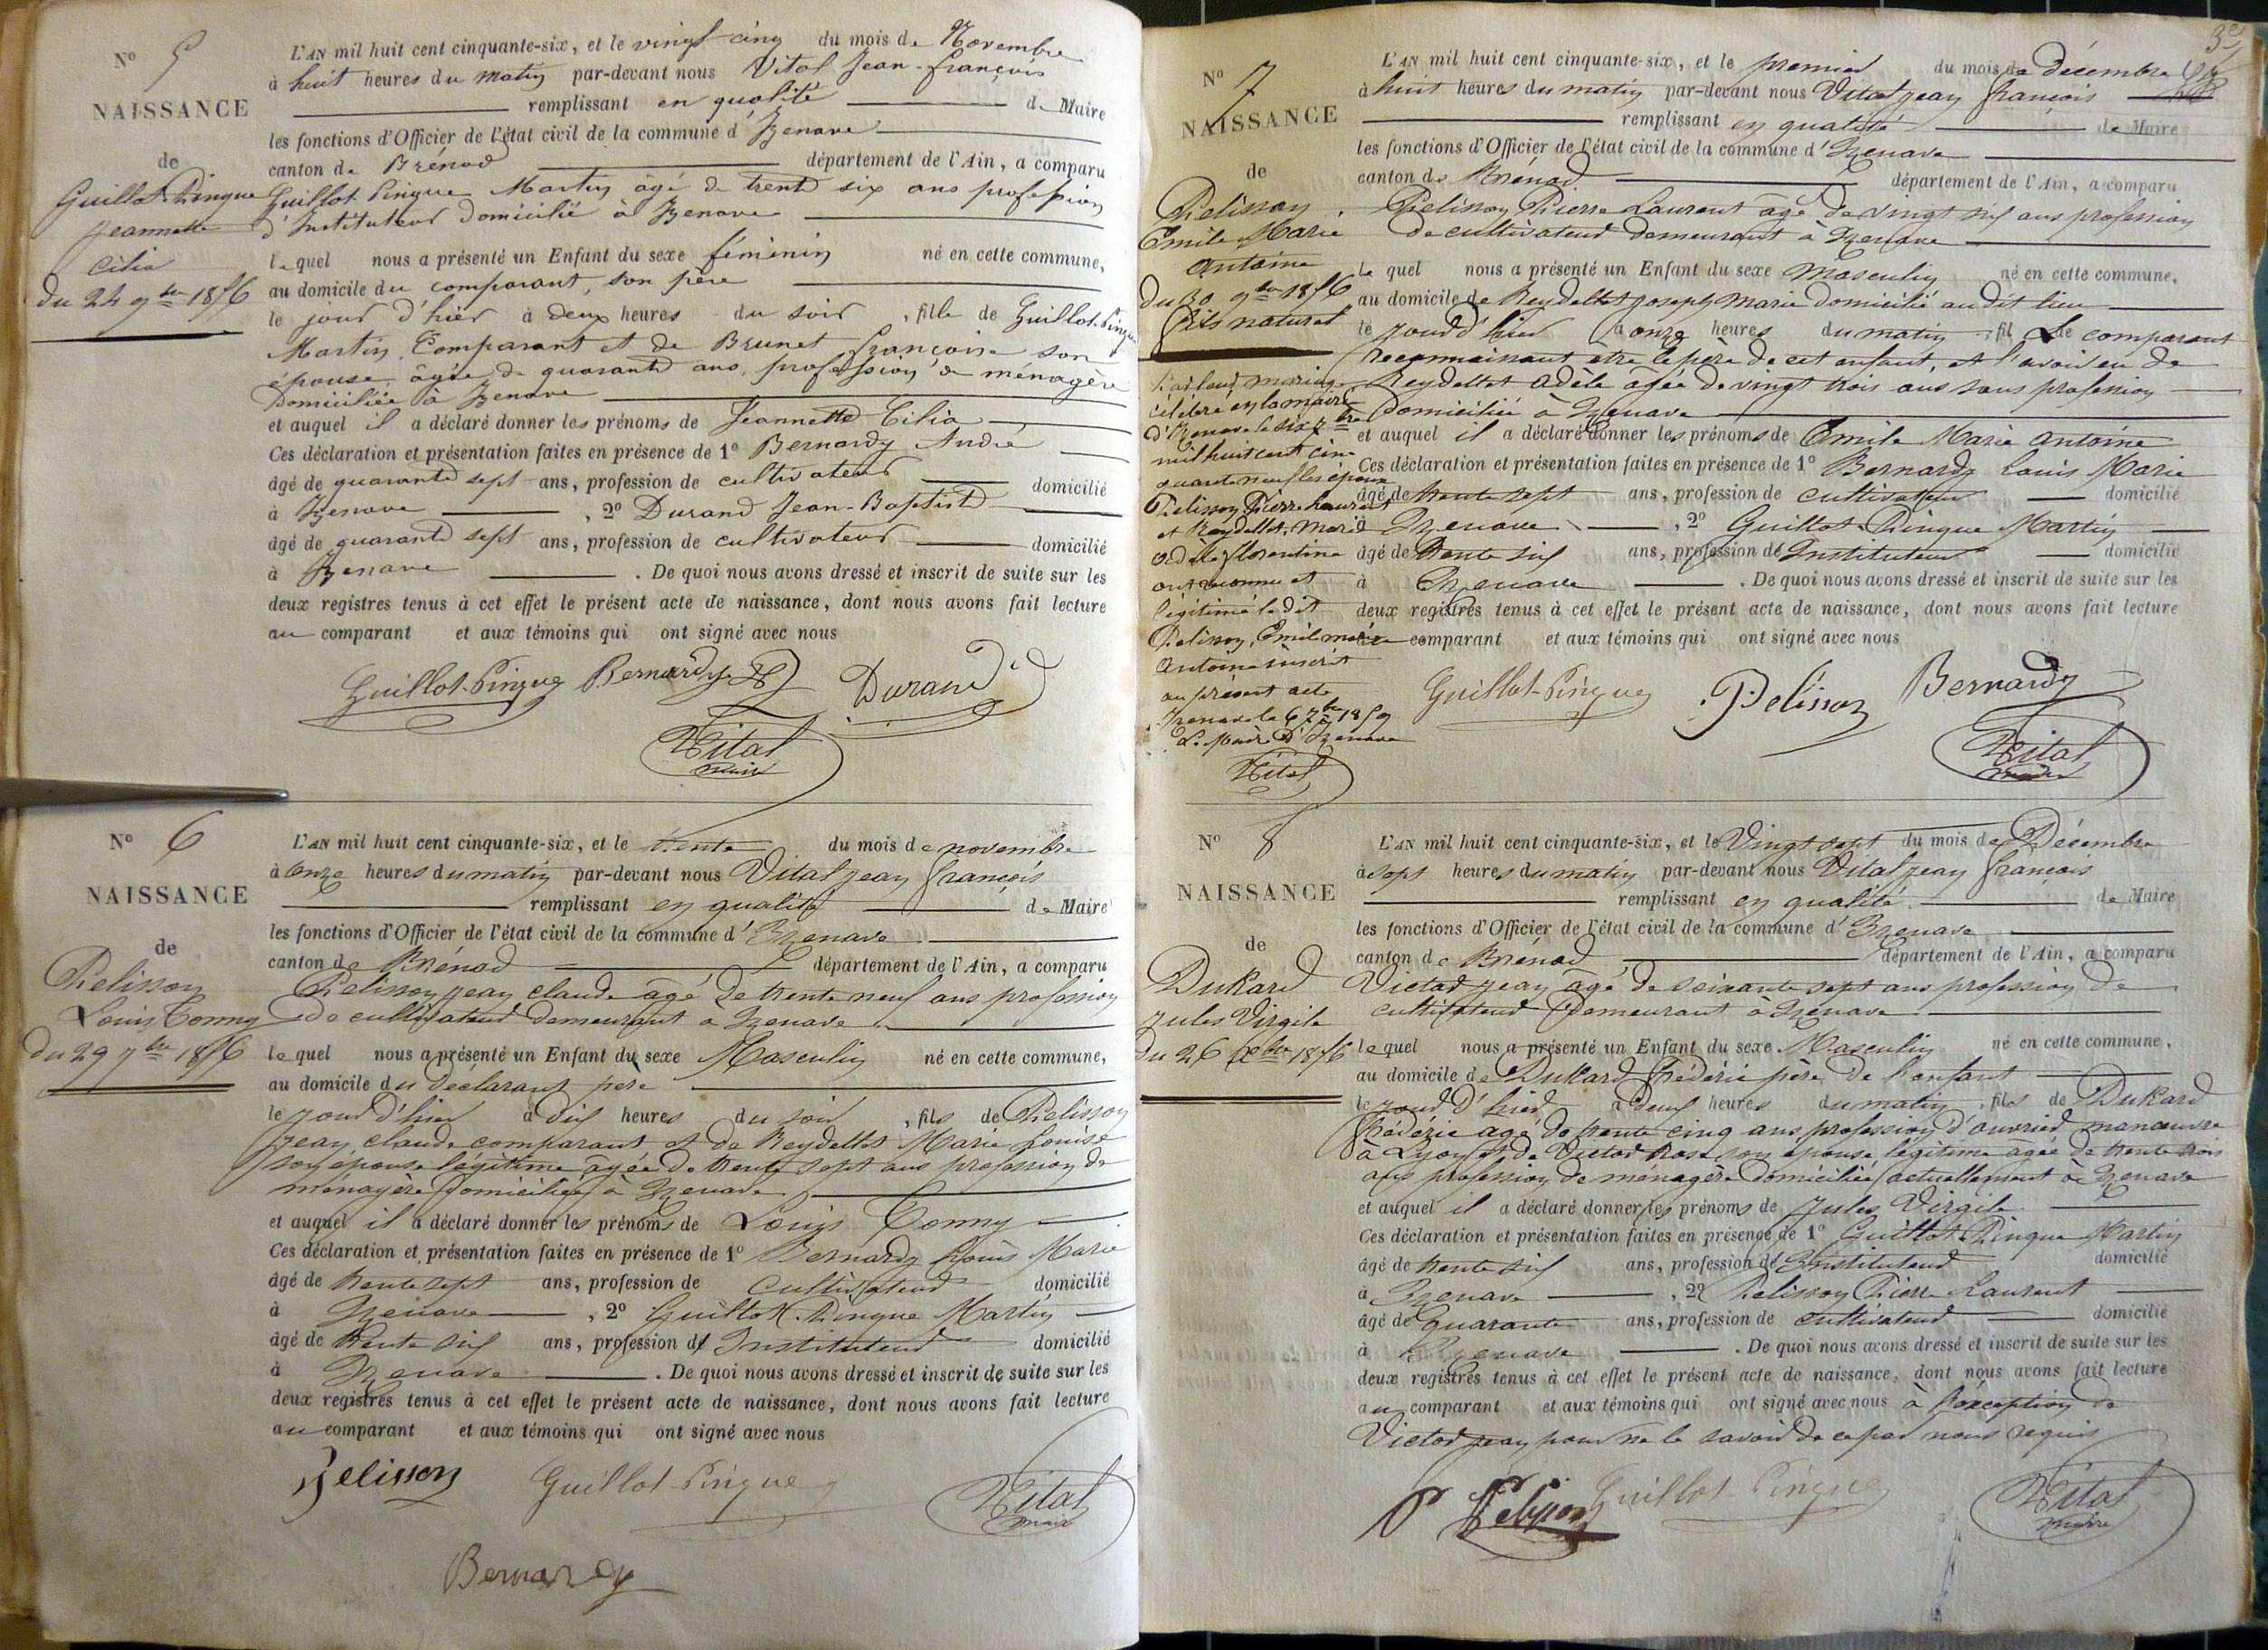 N° 5
NAISSANCE
de
Guillot-Pingue
Jeannette
Cilia
du 24 9bre 1856
L'AN mil huit cent cinquante-six, et le vingt cinq du mois de Novembre
à huit heures du matin par-devant nous Vital Jean-françois
remplissant en qualité de Maire
les fonctions d'Officier de l'état civil de la commune d'Izenave
canton de Brénod département de l'Ain, a comparu
Guillot Pingue Martin âgé de trente six ans profession
d'Instituteur domicilié à Izenave
lequel nous a présenté un Enfant du sexe féminin né en cette commune,
au domicile du comparant, son père
le jour d'hier à deux heures du soir, fille de Guillot-Pingue
Martin, Comparant et de Brunet françoise son
épouse, âgée de quarante ans, profession de ménagère
Domiciliée à Izenave
et auquel il a déclaré donner les prénoms de Jeannette Cilia
Ces déclaration et présentation faites en présence de 1° Bernardy André
âgé de quarante sept ans, profession de cultivateur domicilié
à Izenave, 2° Durand Jean-Baptiste
âgé de quarante sept ans, profession de cultivateur domicilié
à Izenave. De quoi nous avons dressé et inscrit de suite sur les
deux registres tenus à cet effet le présent acte de naissance, dont nous avons fait lecture
au comparant et aux témoins qui ont signé avec nous
Guillot-Pingue Bernardy Durand
Vital
maire
N° 6
NAISSANCE
de
Pelisson
Louis Tonny
du 29 9bre 1856
L'AN mil huit cent cinquante-six, et le trente du mois de novembre
à onze heures du matin par-devant nous Vital jean françois
remplissant en qualité de Maire
les fonctions d'Officier de l'état civil de la commune d'Izenave
canton de Brénod département de l'Ain, a comparu
Pelisson jean claude âgé de trente neuf ans profession
de cultivateur demeurant à Izenave
lequel nous a présenté un Enfant du sexe Masculin né en cette commune,
au domicile du Déclarant père
le jour d'hier à dix heures du soir, fils de Pelisson
jean claude comparant et de Reydellet Marie Louise
son épouse légitime âgée de trente sept ans profession de
ménagère domiciliée à Izenave
et auquel il a déclaré donner les prénoms de Louis Tonny
Ces déclaration et présentation faites en présence de 1° Bernardy Louis Marie
âgé de trente sept ans, profession de cultivateur domicilié
à Izenave, 2° Guillot-Pingue Martin
âgé de trente six ans, profession d'Instituteur domicilié
à Izenave. De quoi nous avons dressé et inscrit de suite sur les
deux registres tenus à cet effet le présent acte de naissance, dont nous avons fait lecture
au comparant et aux témoins qui ont signé avec nous
Pelisson Guillot-Pingue Vital
maire
Bernardy
3e
N° 7
NAISSANCE
de
Pelisson
Emile Marie
Antoine
du 30 9bre 1856
fils naturel
Par leur mariage
célébré en la mairie
d'Izenave le six 7bre
mil huit cent cin-
quante neuf les époux
Pelisson Pierre Laurent
et Reydellet, Marie
Adèle florentine
ont reconnu et
légitimé le dit
Pelisson, Emile marie
Antoine inscrit
au présent acte
Izenave le 6 7bre 1859
Le Maire d'Izenave
Vital
L'AN mil huit cent cinquante-six, et le premier du mois de décembre
à huit heures du matin par-devant nous Vital jean françois
remplissant en qualité de Maire
les fonctions d'Officier de l'état civil de la commune d'Izenave
canton de Brénod département de l'Ain, a comparu
Pelisson Pierre Laurent âgé de vingt six ans profession
de cultivateur demeurant à Izenave
le quel nous a présenté un Enfant du sexe Masculin né en cette commune,
au domicile de Reydellet joseph Marie domicilié au dit lieu
le jour d'hier à onze heures du matin, fil Le comparant
reconnaissant être le père de cet enfant, et l'avoir eu de
Reydellet Adèle âgée de vingt trois ans sans profession
domiciliée à Izenave
et auquel il a déclaré donner les prénoms de Emile Marie Antoine
Ces déclaration et présentation faites en présence de 1° Bernardy Louis Marie
âgé de trente sept ans, profession de cultivateur domicilié
à Izenave, 2° Guillot-Pingue Martin
âgé de trente six ans, profession d'Instituteur domicilié
à Izenave. De quoi nous avons dressé et inscrit de suite sur les
deux registres tenus à cet effet le présent acte de naissance, dont nous avons fait lecture
au comparant et aux témoins qui ont signé avec nous
Guillot-Pingue P. Pelisson Bernardy
Vital
maire
N° 8
NAISSANCE
de
Dukard
Jules Virgile
du 26 Xbre 1856
L'AN mil huit cent cinquante-six, et le Vingt sept du mois de Décembre
à sept heures du matin par-devant nous Vital jean françois
remplissant en qualité de Maire
les fonctions d'Officier de l'état civil de la commune d'Izenave
canton de Brénod département de l'Ain, a comparu
Victor jean âgé de soixante sept ans profession de
cultivateur Demeurant à Izenave
lequel nous a présenté un Enfant du sexe Masculin né en cette commune,
au domicile de Dukard frédéric père de l'enfant
le jour d'hier à deux heures du matin, fils de Dukard
frédéric agé de trente cinq ans profession d'ouvrier manœuvre
à Lyon et de Victor Rose son épouse légitime âgée de trente trois
ans profession de ménagère domiciliée actuellement à Izenave
et auquel il a déclaré donner les prénoms de Jules Virgile
Ces déclaration et présentation faites en présence de 1° Guillot-Pingue Martin
âgé de trente six ans, profession d'Instituteur domicilié
à Izenave, 2° Pelisson Pierre Laurent
âgé de quarante ans, profession de cultivateur domicilié
à Izenave. De quoi nous avons dressé et inscrit de suite sur les
deux registres tenus à cet effet le présent acte de naissance, dont nous avons fait lecture
au comparant et aux témoins qui ont signé avec nous à l'exception de
Victor jean pour ne le savoir de ce par nous requis
P Pelisson Guillot Pingue Vital
maire